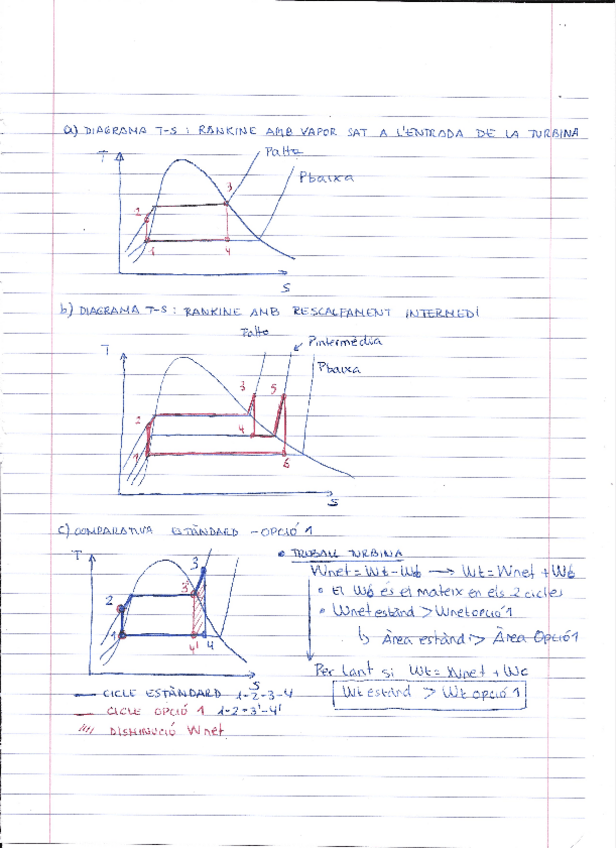 a) DIAGRAMA T-S: RANKINE AMB VAPOR SAT A L'ENTRADA DE LA TURBINA
T
Palta
Pbaixa
3
2
1
4
S
b) DIAGRAMA T-S: RANKINE AMB RESCALFAMENT INTERMEDI
Palta
T
Pintermèdia
Pbaixa
3
5
2
4
1
6
S
c) COMPARATIVA ESTÀNDARD - OPCIÓ 1
T
3
3'
2
1
4'
4
S
• TREBALL TURBINA
Wnet = Wt - Wb → Wt = Wnet + Wb
• El Wb és el mateix en els 2 cicles
• Wnet estànd > Wnet opció 1
↳ Àrea estànd > Àrea Opció 1
Per tant si Wt = Wnet + Wc
Wt estànd > Wt opció 1
— CICLE ESTÀNDARD 1-2-3-4
— CICLE OPCIÓ 1 1-2-3'-4'
//// DISMINUCIÓ Wnet